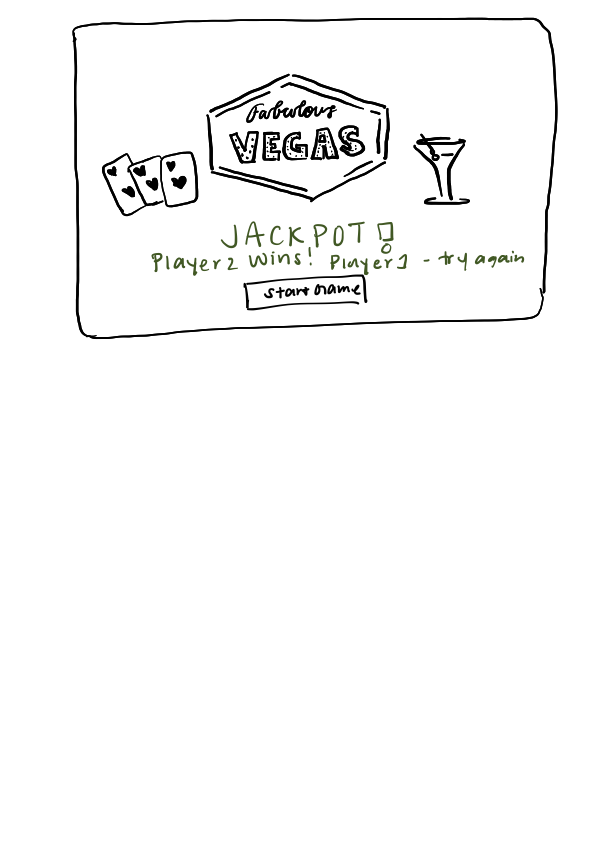 Fabulous
VEGAS
JACKPOT!
Player 2 Wins! Player 1 - try again
start game